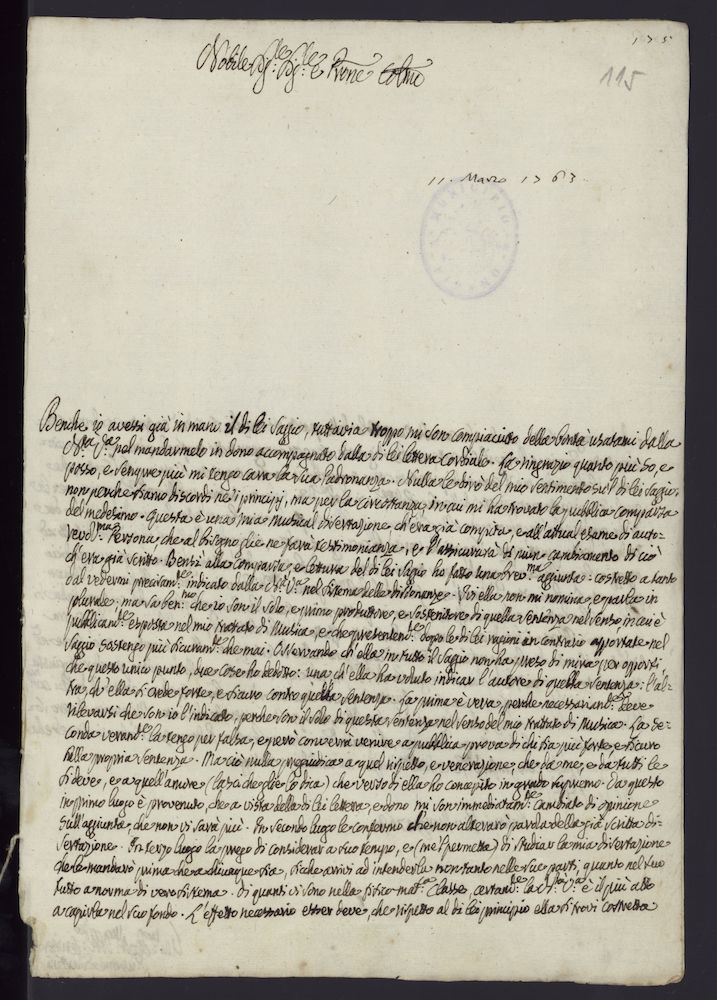 175
115
Nobile Sig:re Sig:re e Prone Colmo
11. Marzo 1763.
MUNICIPIO
Benche io avessi già in mano il di lei Saggio, tuttavia troppo mi son compiaciuto della bontà usatami dalla
V:ra pel mandarmelo in dono accompagnato dalla di lei lettera cordiale. La ringrazio quanto più so, e
posso, e sempre più mi tengo cara la sua Padronanza. Nulla le dirò del mio sentimento sul di lei Saggio,
non perche siamo discordi ne' principj, ma per la circostanza, in cui mi ha trovato la pubblica comparsa
del medesimo. Questa è una mia musical dissertazione ch'era già compita, e all'attual esame di auto-
revol:ma Persona, che al bisogno glie ne farà testimonianza, e l'assicurarà di niun cambiamento di ciò
ch'era già scritto. Bensì alla comparsa, e lettura del di lei Saggio ho fatto una brev:ma aggiunta, costretto a tanto
dal vedermi precisam:te indicato dalla nel sistema delle dissonanze. Ivi ella non mi nomina, e parla in
plurale, ma sa ben:mo che io son il solo, e primo produttore, e sostenitore di quella sentenza nel senso in cui è
pubblicam:te esposta nel mio trattato di Musica, e che presentem:te dopo le di lei ragioni in contrario apportate nel
Saggio sostengo più sicuram:te che mai. Osservando ch'ella in tutto il Saggio non ha preso di mira per opporsi,
che questo unico punto, due cose ho dedotto: una ch'ella ha voluto indicar l'autore di quella sentenza: l'al-
tra, ch'ella si crede forte, e sicuro contro quella sentenza. La prima è vera, perche necessariam:te deve
rilevarsi che son io l'indicato, perche son il solo di questa sentenza nel senso del mio trattato di Musica. La se-
conda veram:te la tengo per falsa, e però converrà venire a pubblica prova di chi sia più forte, e sicuro
nella propria sentenza. Ma ciò nulla pregiudica a quel rispetto, e venerazione, che da me, e da tutti le
si deve, e a quell'amore (lasci che glie lo dica) che verso di ella ho concepito in grado supremo. Da questo
in primo luogo è provenuto, che a vista della di lei lettera, e dono mi son immediatam:te cambiato di opinione
sull'aggiunta, che non vi sarà più. In secondo luogo le confermo che non altererò parola della già scritta dis-
sertazione. In terzo luogo la prego di considerar a suo tempo, e (me'l permetta) di studiar la mia dissertazione
che le manderò prima che a chiunque sia, sicche arrivi ad intenderla non tanto nelle sue parti, quanto nel suo
tutto a norma di vero sistema. Di quanti vi sono nella fisico-mat:ca Classe, certam:te la è il più atto
a capirla nel suo fondo. L'effetto necessario esser deve, che rispetto al di lei principio ella si trovi costretta